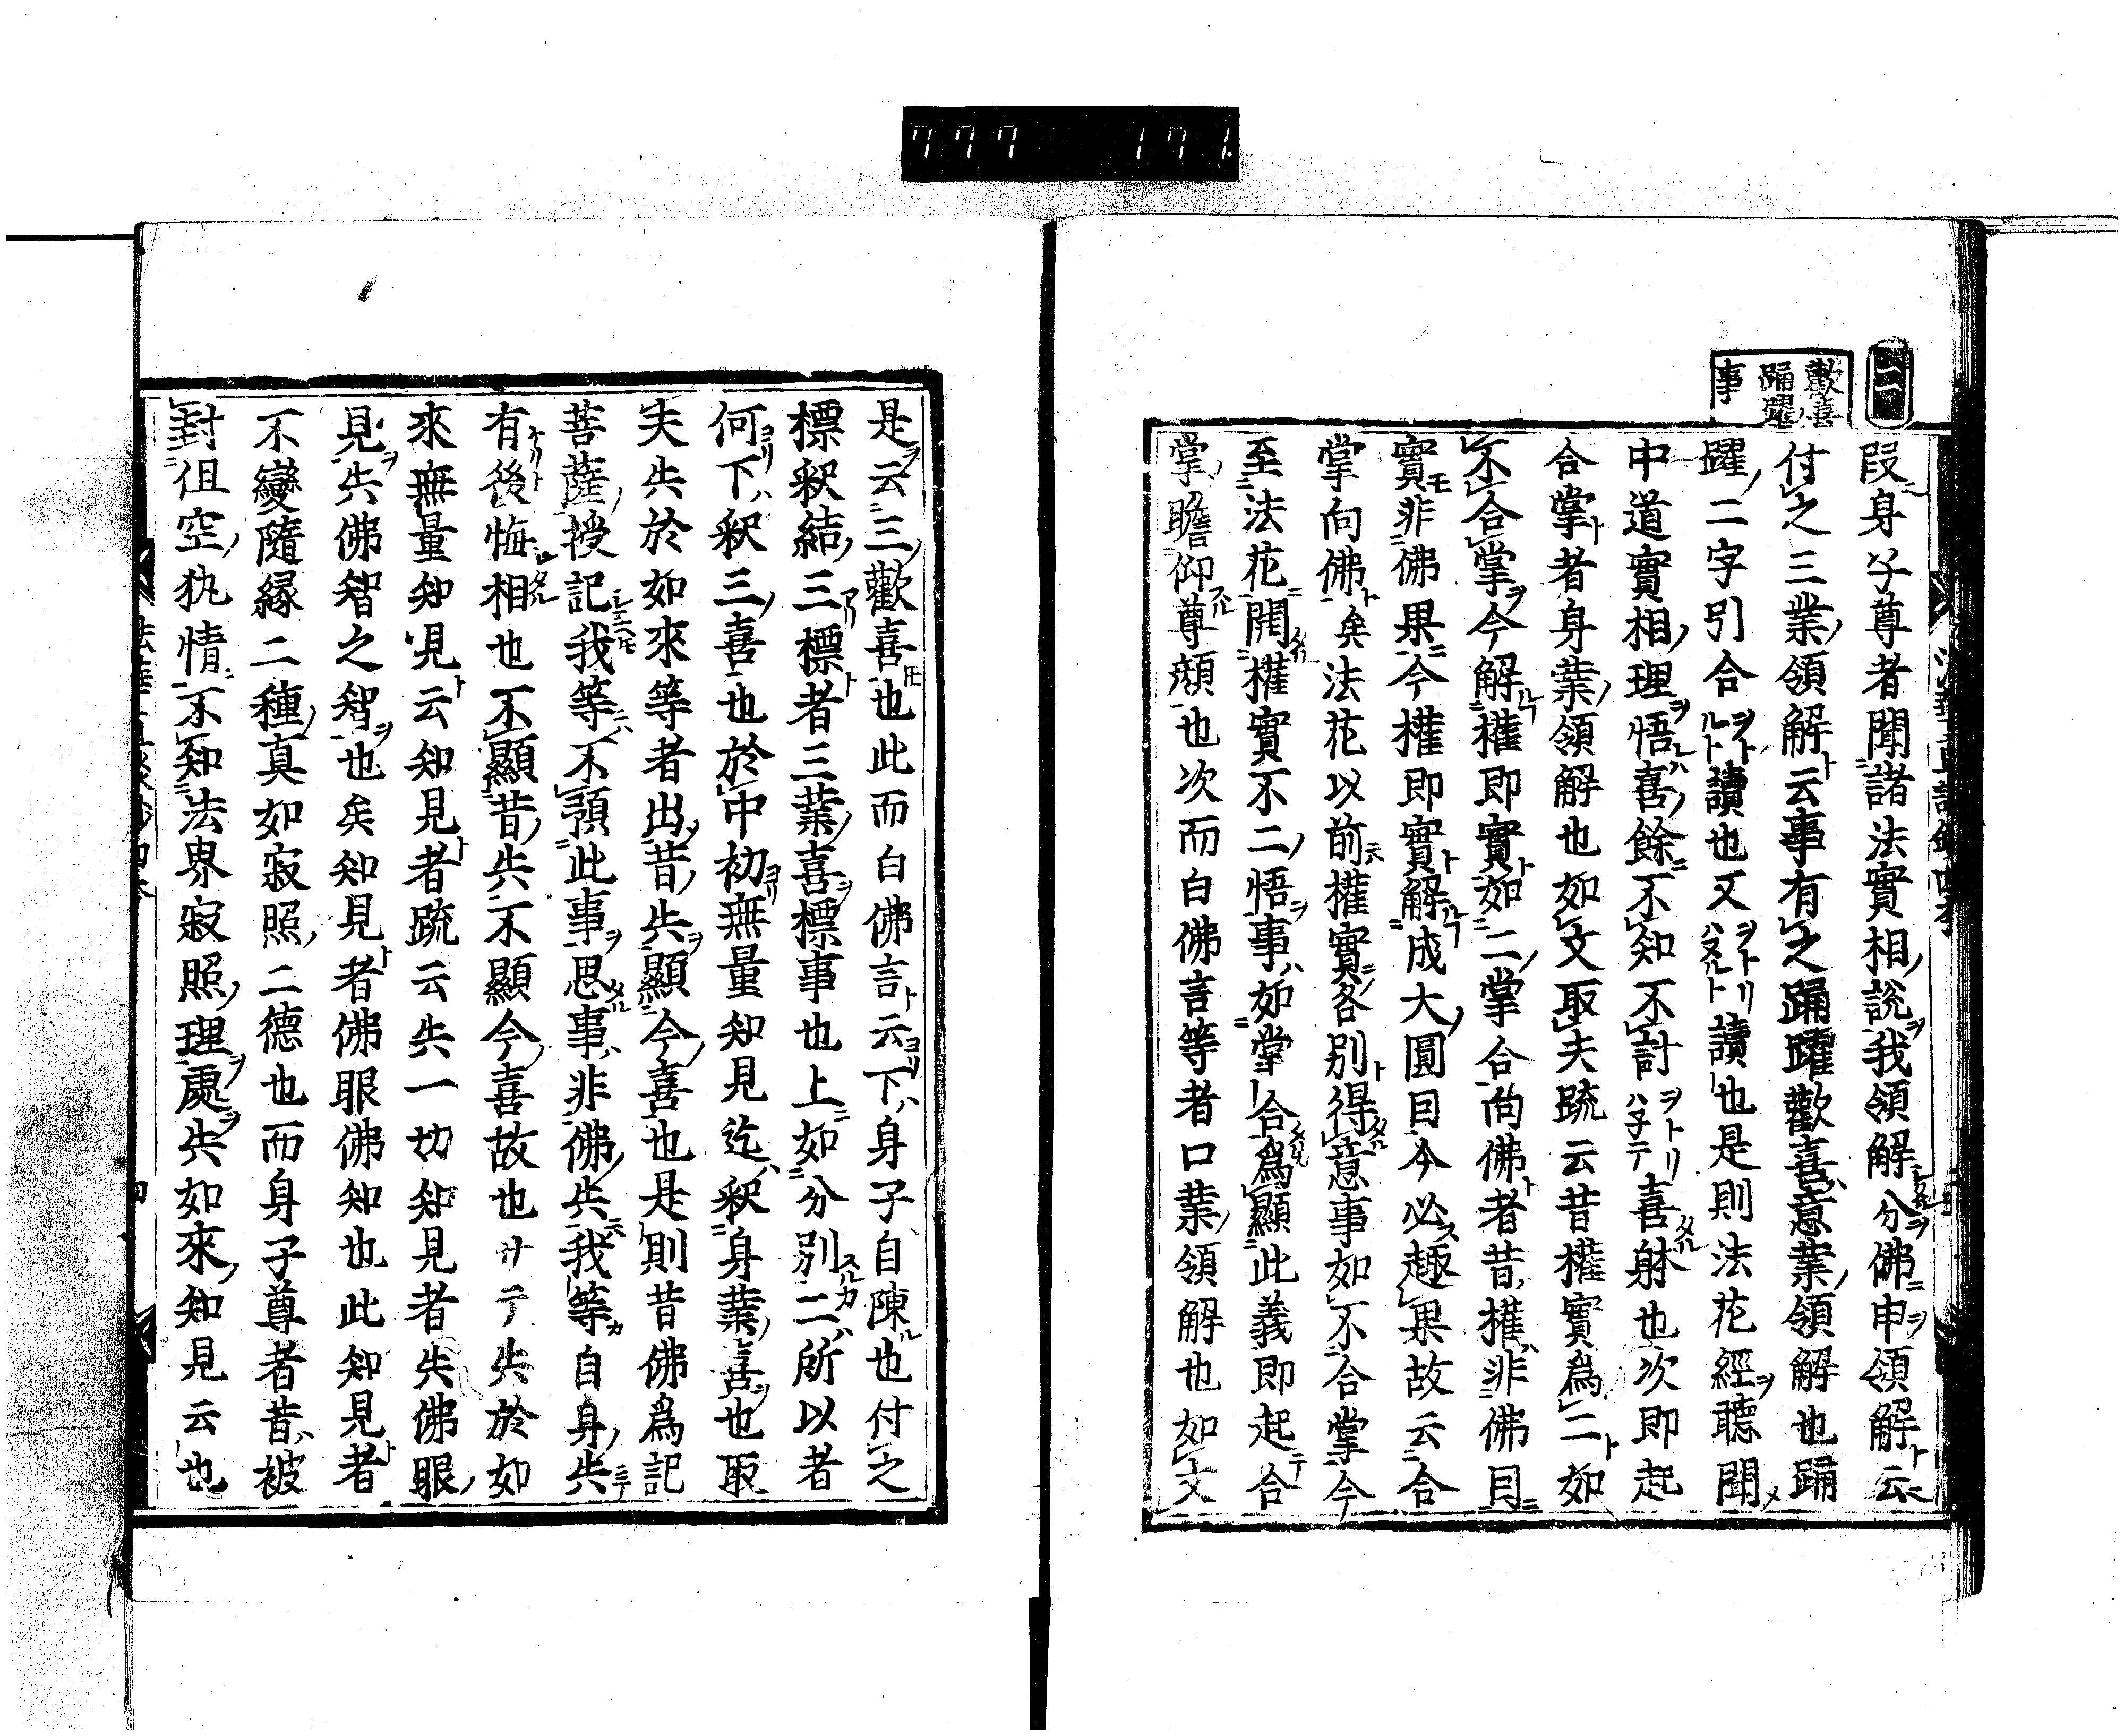 777 171
二
歡喜
踊躍
事
段身子尊者聞諸法實相說我領解分佛申領解云
付之三業領解云事有之踊躍歡喜意業領解也踊
躍二字引合ヲトルト讀也又ヲトリハヌルト讀也是則法花經聽聞
中道實相理悟喜餘不知不計ヲトリハヂテ喜躰也次即起
合掌者身業領解也如文取夫疏云昔權實爲二如
不合掌今解權即實如二掌合向佛者昔權非佛因
實非佛果今權即實解成大圓因今必趣果故云合
掌向佛矣法花以前權實各別得意事如不合掌今
至法花開權實不二悟事如掌合爲顯此義即起合
掌瞻仰尊顏也次而白佛言等者口業領解也如文
是云三歡喜也此而白佛言云下身子自陳也付之
標釈結三標者三業喜標事也上如分別二所以者
何下釈三喜也於中初無量知見迄釈身業喜也取
夫失於如來等者出昔失顯今喜也是則昔佛爲記
菩薩授記我等不預此事思事非佛失我等自身失
有後悔相也不顯昔失不顯今喜故也サテ失於如
來無量知見云知見者疏云失一切知見者失佛眼
見失佛智之智也矣知見者佛眼佛知也此知見者
不變隨縁二種真如寂照二德也而身子尊者昔被
封但空執情不知法界寂照理處失如來知見云也